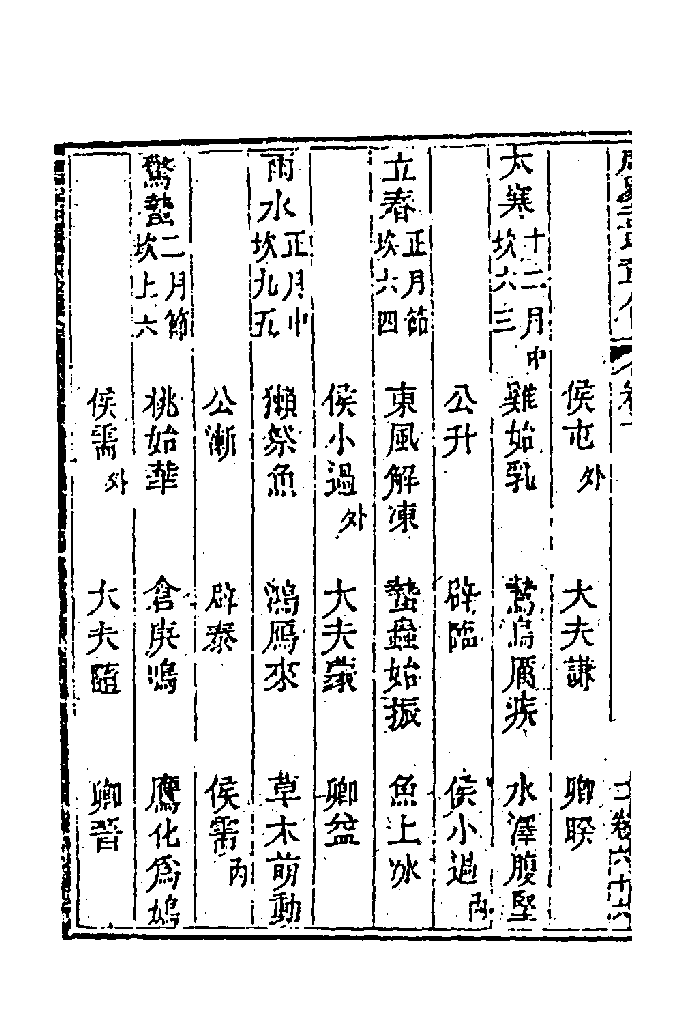 侯屯外　大夫謙　卿睽
大寒十二月中坎六三　雞始乳　鷙鳥厲疾　水澤腹堅
公升　辟臨　侯小過內
立春正月節坎六四　東風解凍　蟄蟲始振　魚上冰
侯小過外　大夫蒙　卿益
雨水正月中坎九五　獺祭魚　鴻鴈來　草木萌動
公漸　辟泰　侯需內
驚蟄二月節坎上六　桃始華　倉庚鳴　鷹化爲鳩
侯需外　大夫隨　卿晉